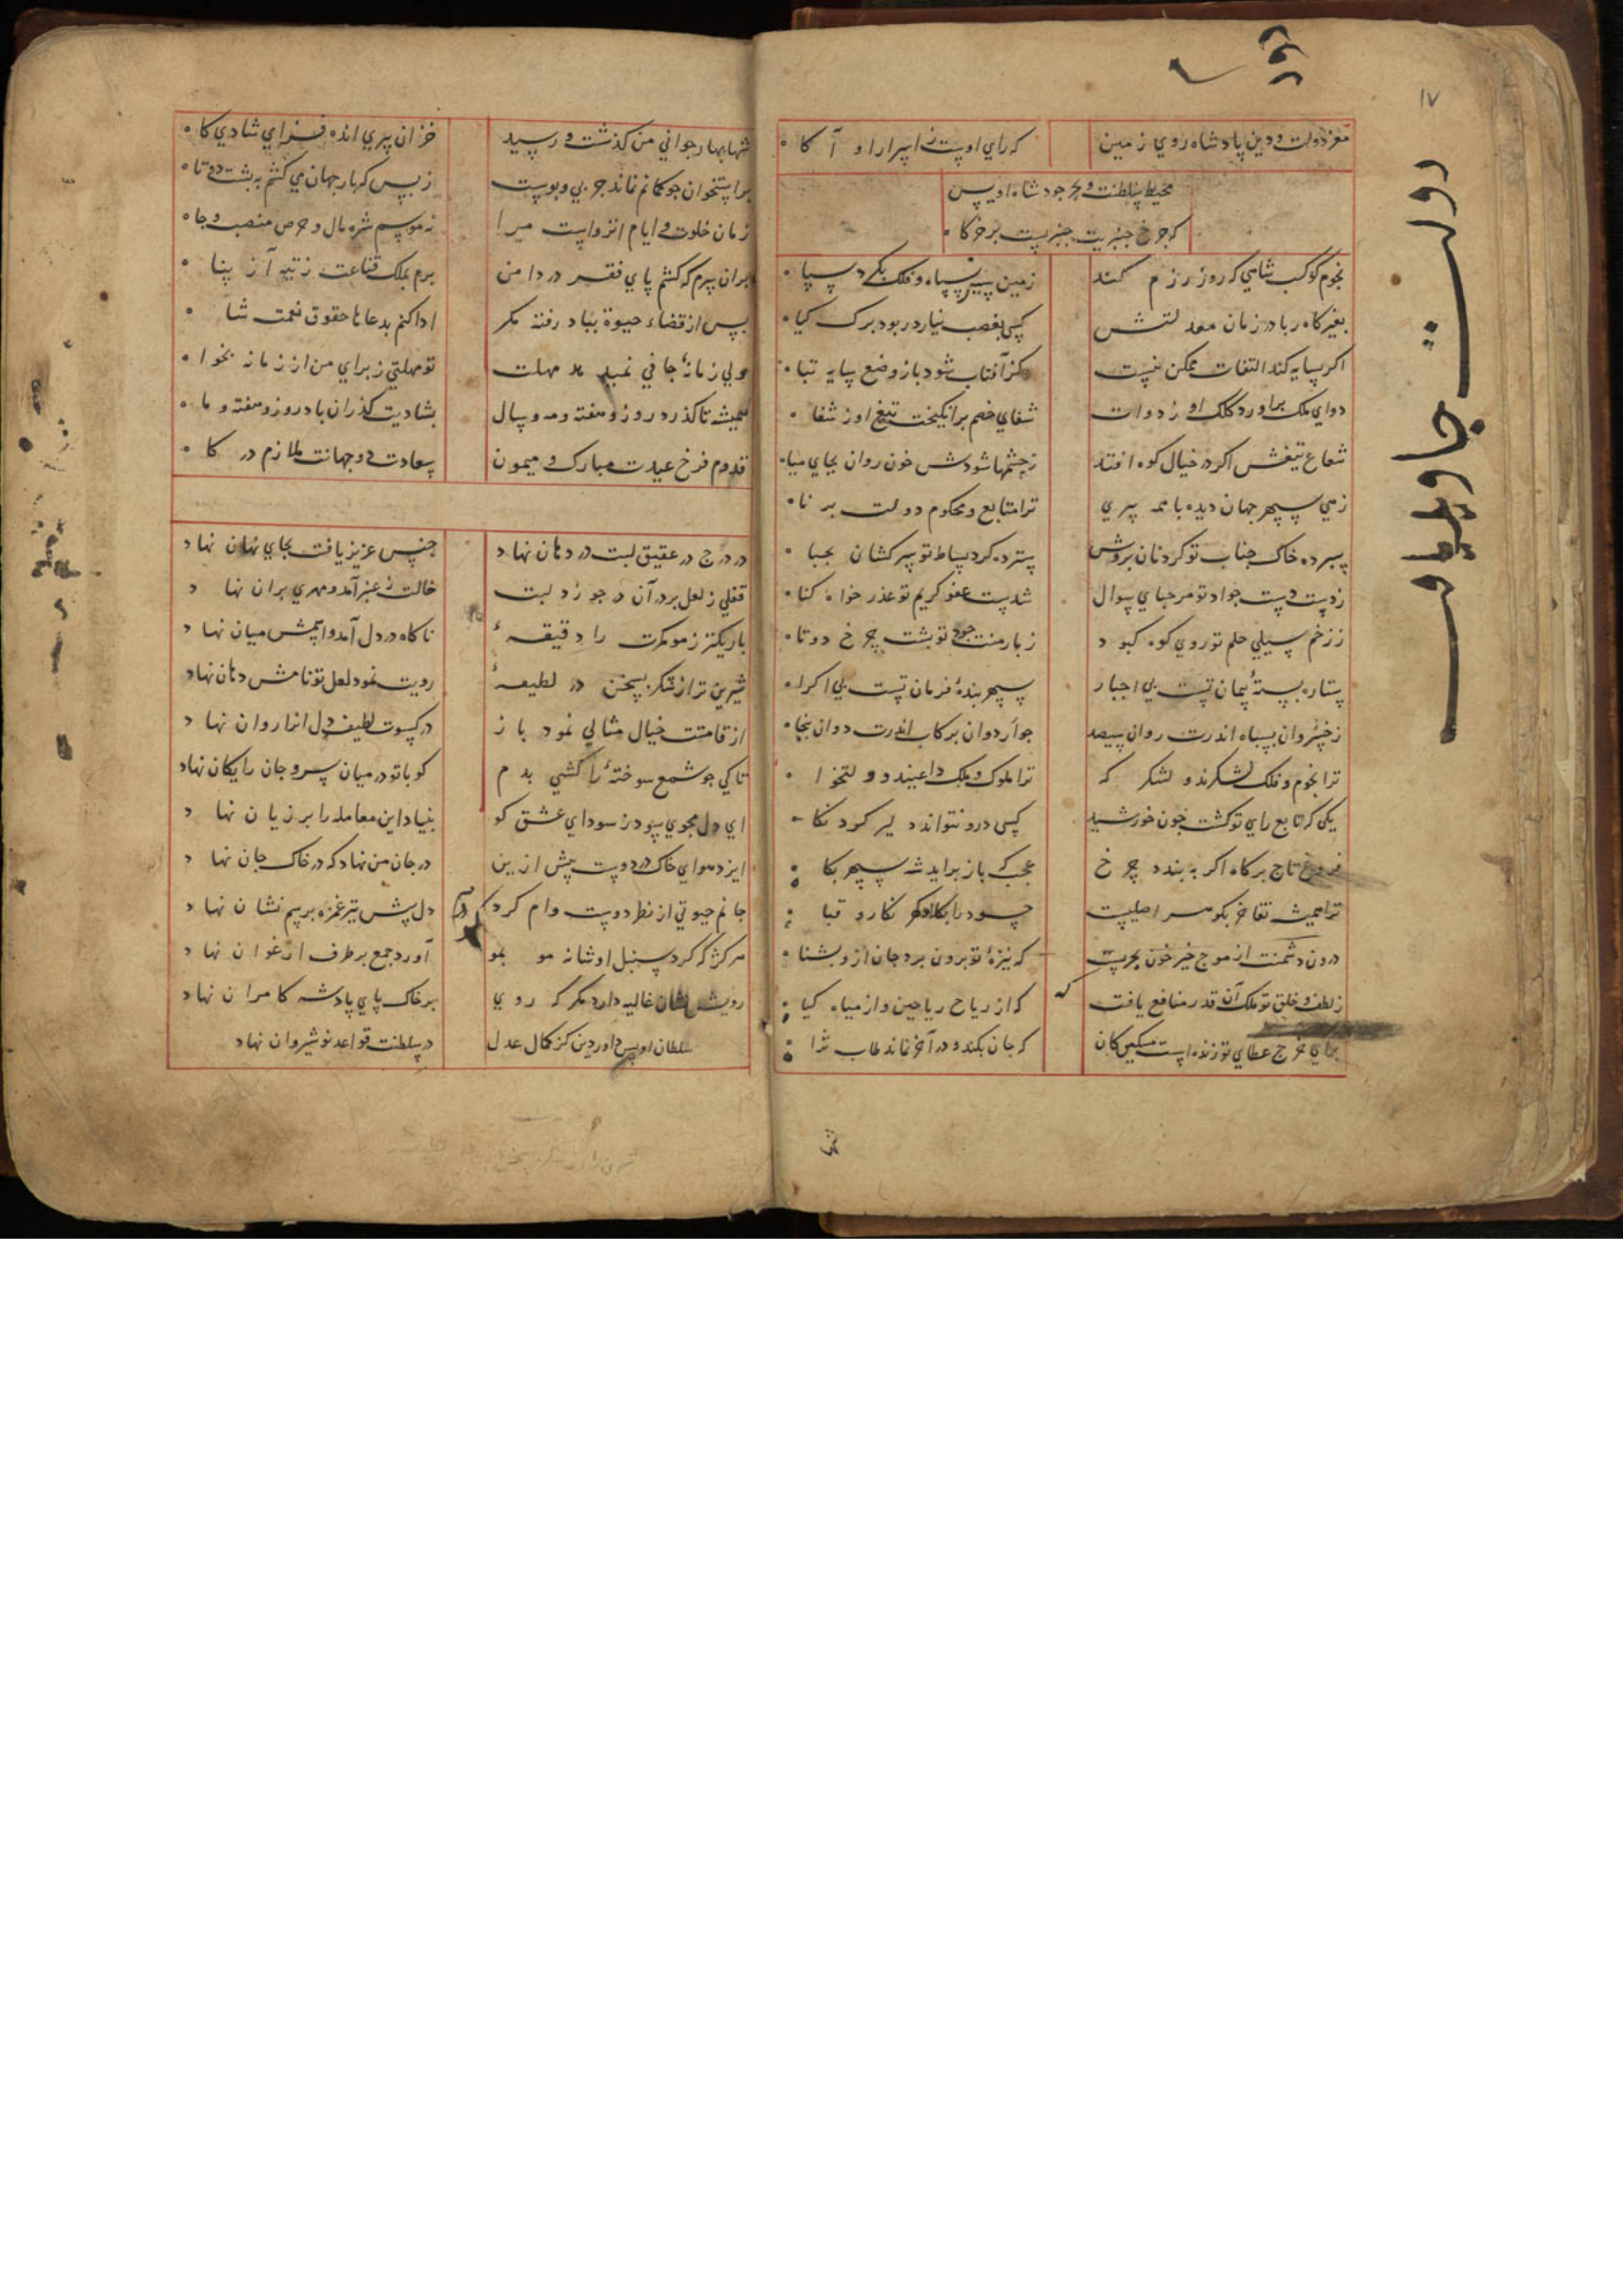 ۱۷
معز دولت و دین پادشاه روی زمین که رای اوست ز اسرار او آکاه
محیط سلطنت و بحر جود شاه اویس
که چرخ چنبریست
نجوم کوکب شاهی که روز رزم کند زمین سپاه و فلک یکی سپاه
بغیر کاه ربا در زمان معدلتش کسی بغصب نیارد ربود برک کیاه
اکر بسایه کند التفات ممکن نیست کز آفتاب شود باز وضع سایه تباه
دوای ملک براورد کلک او ز دوات شفای خصم برانکیخت تیغ او ز شفاه
شعاع تیغش اکر در خیال کوه افتد ز چشمها شودش خون روان بجای میاه
زهی سپهر جهان دیده با همه پیری ترا متابع و محکوم دولت برناه
سپرده خاک جناب تو کردنان بروش سترده کرد بساط تو سرکشان بجباه
زدست دست جواد تو مرحبای سوال شدست عفو کریم تو عذر خواه کناه
ز زخم سیلی حلم تو روی کوه کبود ز بار منت جود تو پشت چرخ دوتاه
ستاره بستهٔ پیمان تست بی اجبار سپهر بندهٔ فرمان تست بی اکراه
ز خسروان بسپاه اندرت روان سیصد جوار دوان برکاب اندرت دوان پنجاه
ترا نجوم و فلک لشکرند و لشکر که ترا ملوک و ملک داعیند و دولتخواه
یکی که تابع رای تو کشت چون خورشید کسی درو نتواند دلیر کرد نکاه
فروغ تاج برکاه اکر به بندد چرخ عجب که باز براید شه سپهر بکاه
ترا همیشه تفاخر بکوهر اصلیست حسود را بکلاه و کمر نکار و قباه
درون دشمنت از موج خیز خون بحریست که نیزهٔ تو برون برد جان ازو بشناه
ز لطف و خلق تو ملک آن قدر منافع یافت که از ریاح ریاحین و از میاه کیاه
برای خرج عطای تو زنده است مسکین کان که جان بکند و در آخر نماند طاب ثراه
شها بهار جوانی من کذشت و رسید خزان پیری انده فزای شادی کاه
مرا ستخوان چو کمانم نماند جز پی و پوست ز بس که بار جهان می کشم به پشت دوتاه
زمان خلوت و ایام انزواست مرا نه موسم شره مال و حرص منصب و جاه
بران سرم که کشم پای فقر در دامن برم بملک قناعت ز تیه آز پناه
سپس از قضاء حیوة بباد رفته مکر ادا کنم بدعاها حقوق نعمت شاه
ولی زمانهٔ جافی نمیدهد مهلت تو مهلتی ز برای من از زمانه بخواه
همیشه تا کذرد روز و هفته و مه و سال بشادیت کذران باد روز و هفته و ماه
قدوم فرخ عیدت مبارک و میمون سعادت دو جهانت ملازم درکاه
در درج در عقیق لبت در دهان نهاد جنس عزیز یافت بجای نهان نهاد
قفلی ز لعل بر در آن درج زد لبت خالت ز عنبر آمد و مهری بران نهاد
باریکتر ز مو کمرت را دقیقهٔ ناکاه در دل آمد و اسمش میان نهاد
شیرین تر از شکر بسخن در لطیفهٔ رویت نمود لعل تو نامش دهان نهاد
از قامتت خیال مثالی نمود باز در کسوت لطیف دل انرا روان نهاد
تا کی چو شمع سوختهٔ را کشی بدم کو با تو در میان سر و جان رایکان نهاد
ای دل مجوی سود ز سودای عشق کو بنیاد این معامله را بر زیان نهاد
ایزد هوای خاک در دوست پیش ازین در جان من نهاد که در خاک جان نهاد
جانم چو تیر از نظر دوست وام کرد دل پیش تیر غمزه برسم نشان نهاد
هرکژ که کرد سنبل او شانه مو بمو آورد جمع بر طرف ارغوان نهاد
رویش نشان غالیه دارد مکر که روی بر خاک پای پادشه کامران نهاد
سلطان اویس داور دین کز کمال عدل در سلطنت قواعد نوشیروان نهاد